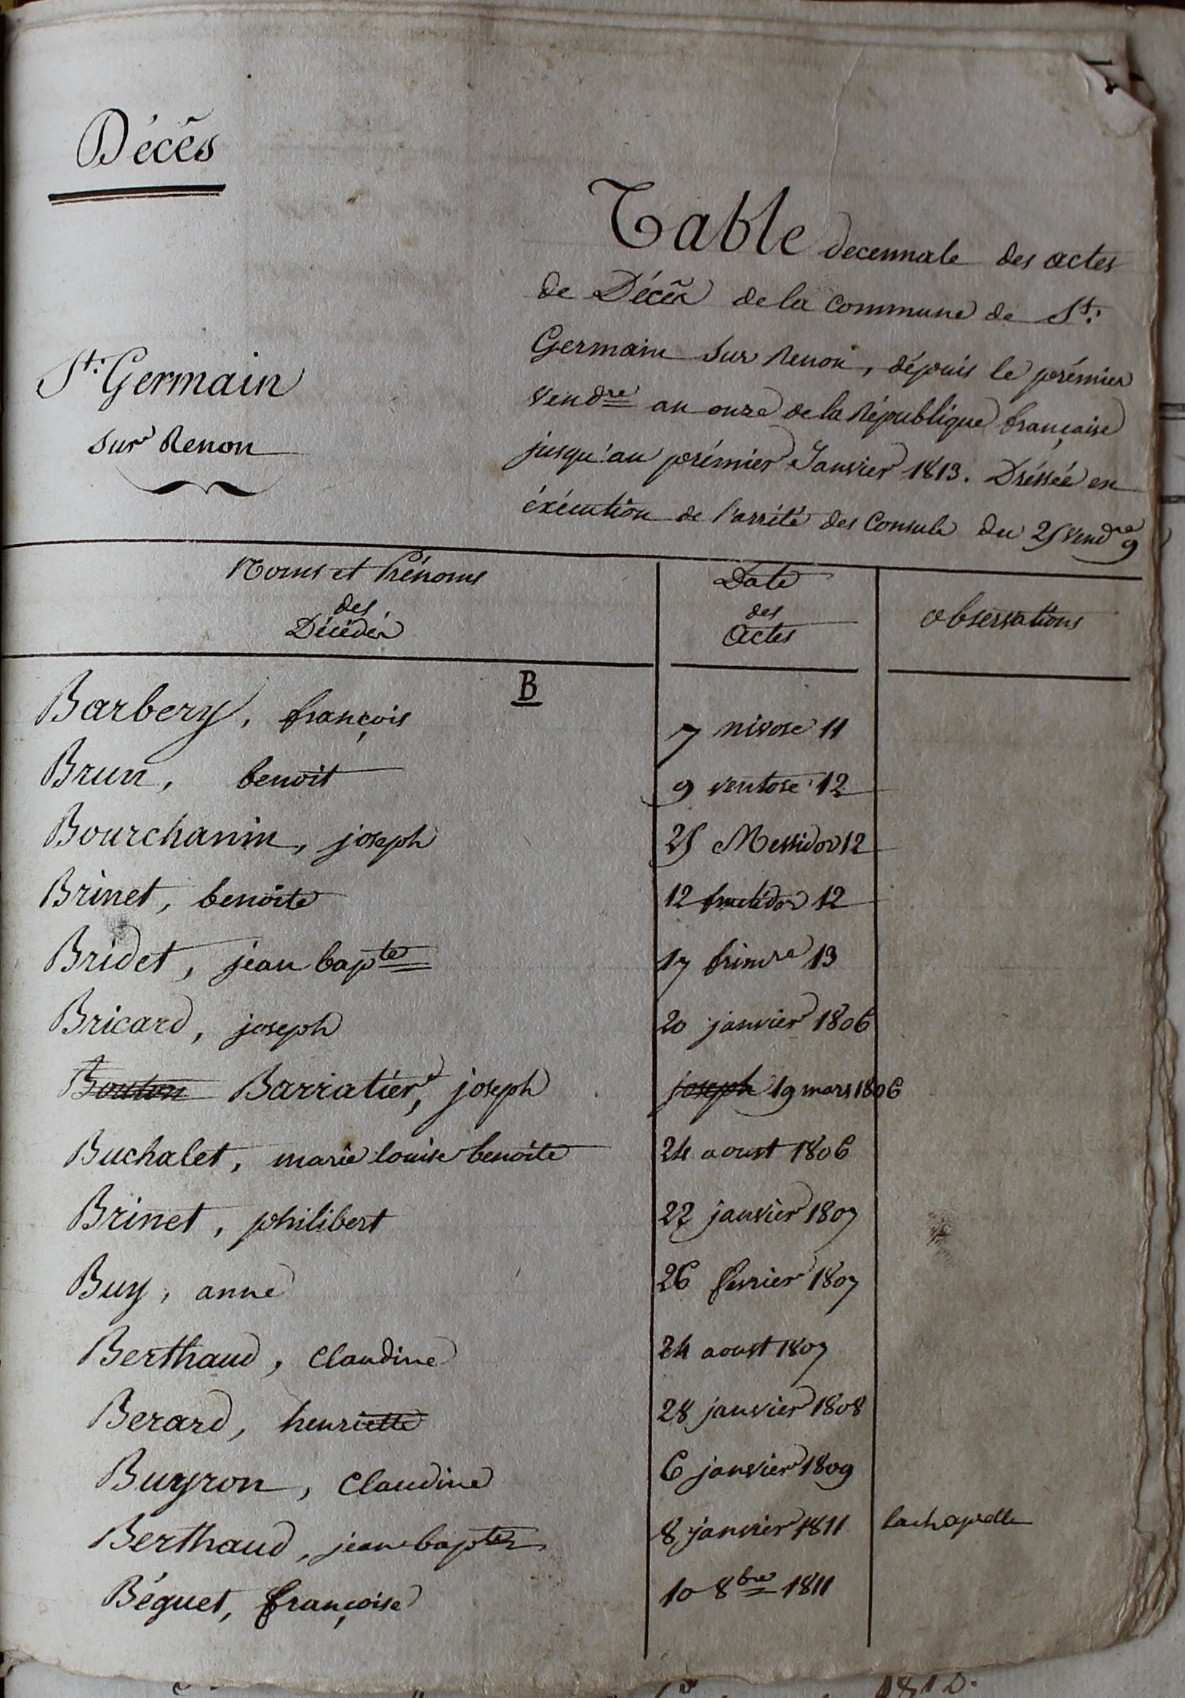 Décès
Table decennale des actes
de Décès de la commune de St.
Germain sur Renon, dépuis le prémier
vendre an onze de la République française
jusqu'au prémier Janvier 1813. Dréssée en
éxécution de l'arrété des Consuls du 25 vendre 9
St. Germain
sur Renon
Noms et Prénoms
des
Décédés
Date
des
Actes
Observations
B
Barbery, françois 7 nivose 11
Brun, benoit 9 ventose 12
Bourchanin, joseph 25 Messidor 12
Brinet, benoite 12 fructidor 12
Bridet, jean bapte 17 frimre 13
Bricard, joseph 20 janvier 1806
Bouton Barratier, joseph joseph 19 mars 1806
Buchalet, marie louise benoite 24 aoust 1806
Brinet, philibert 22 janvier 1807
Buy, anne 26 février 1807
Berthaud, Claudine 24 aoust 1807
Berard, henriette 28 janvier 1808
Buyron, Claudine 6 janvier 1809
Berthaud, jean bapte 8 janvier 1811 lachapelle
Béguet, françoise 10 8bre 1811